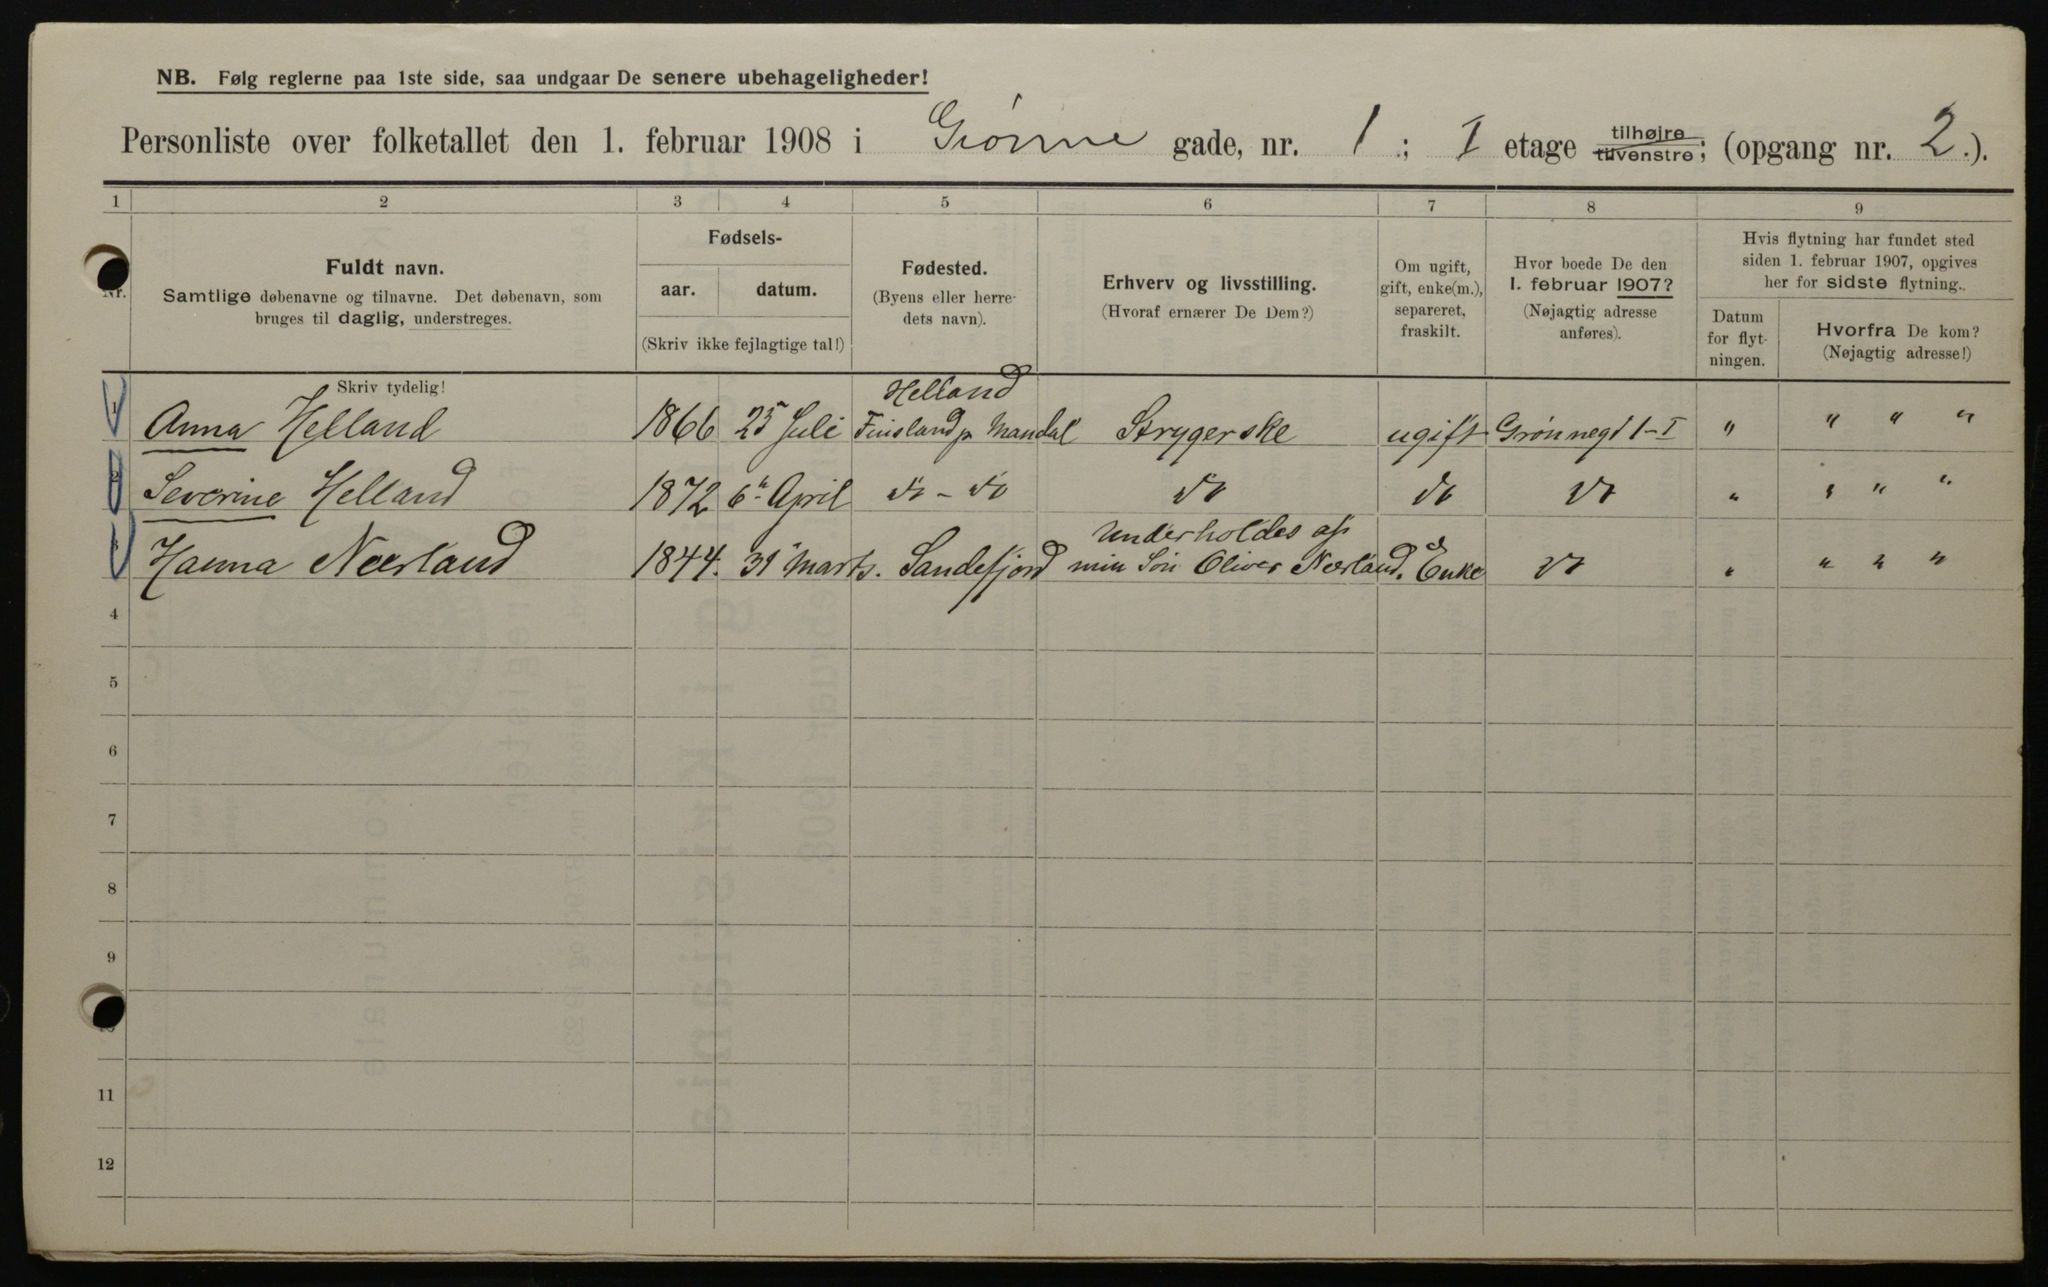 NB. Følg reglerne paa 1ste side, saa undgaar De senere ubehageligheder!
Personliste over folketallet den 1. februar 1908 i Grönne gade, nr. 1.; I etage tilhøjre tilvenstre; (opgang nr. 2.).
1 2 3 4 5 6 7 8 9
Nr.
Fuldt navn.
Samtlige døbenavne og tilnavne. Det døbenavn, som
bruges til daglig, understreges.
Skriv tydelig!
Fødsels-
aar. datum.
(Skriv ikke fejlagtige tal!)
Fødested.
(Byens eller herre-
dets navn).
Erhverv og livsstilling.
(Hvoraf ernærer De Dem?)
Om ugift,
gift, enke(m.),
separeret,
fraskilt.
Hvor boede De den
1. februar 1907?
(Nøjagtig adresse
anføres).
Hvis flytning har fundet sted
siden 1. februar 1907, opgives
her for sidste flytning.
Datum
for flyt-
ningen.
Hvorfra De kom?
(Nøjagtig adresse!)
Helland
1 Anna Helland 1866 25 Juli Finsland pr Mandal Strygerske ugift Grönnegd 1-I " " " "
2 Severine Helland 1872 6 April do - do do do do " " " "
Underholdes af
3 Hanna Neerland 1844. 31 Marts. Sandefjord min Sön Oliver Neerland. Enke do " " " "
4
5
6
7
8
9
11
12